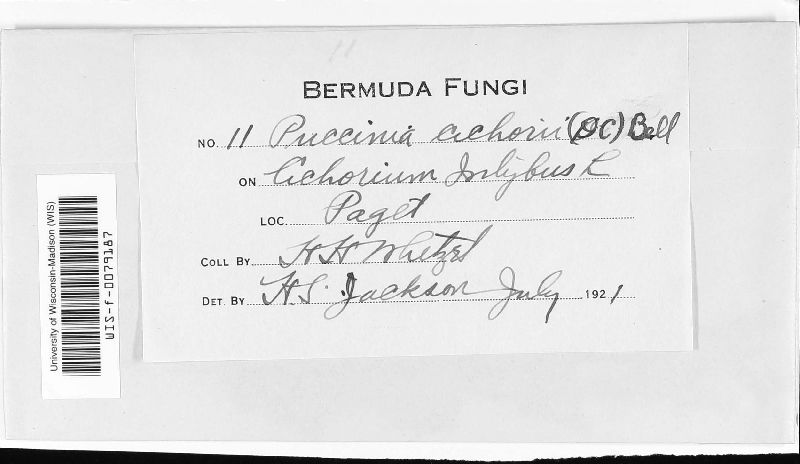 11
BERMUDA FUNGI
NO. 11 Puccinia cichorii (DC) Bell
ON Cichorium Intybus L
LOC. Paget
COLL BY H H Whetzel
DET. BY H.S. Jackson July 1921
University of Wisconsin-Madison (WIS)
WIS-f-0079187